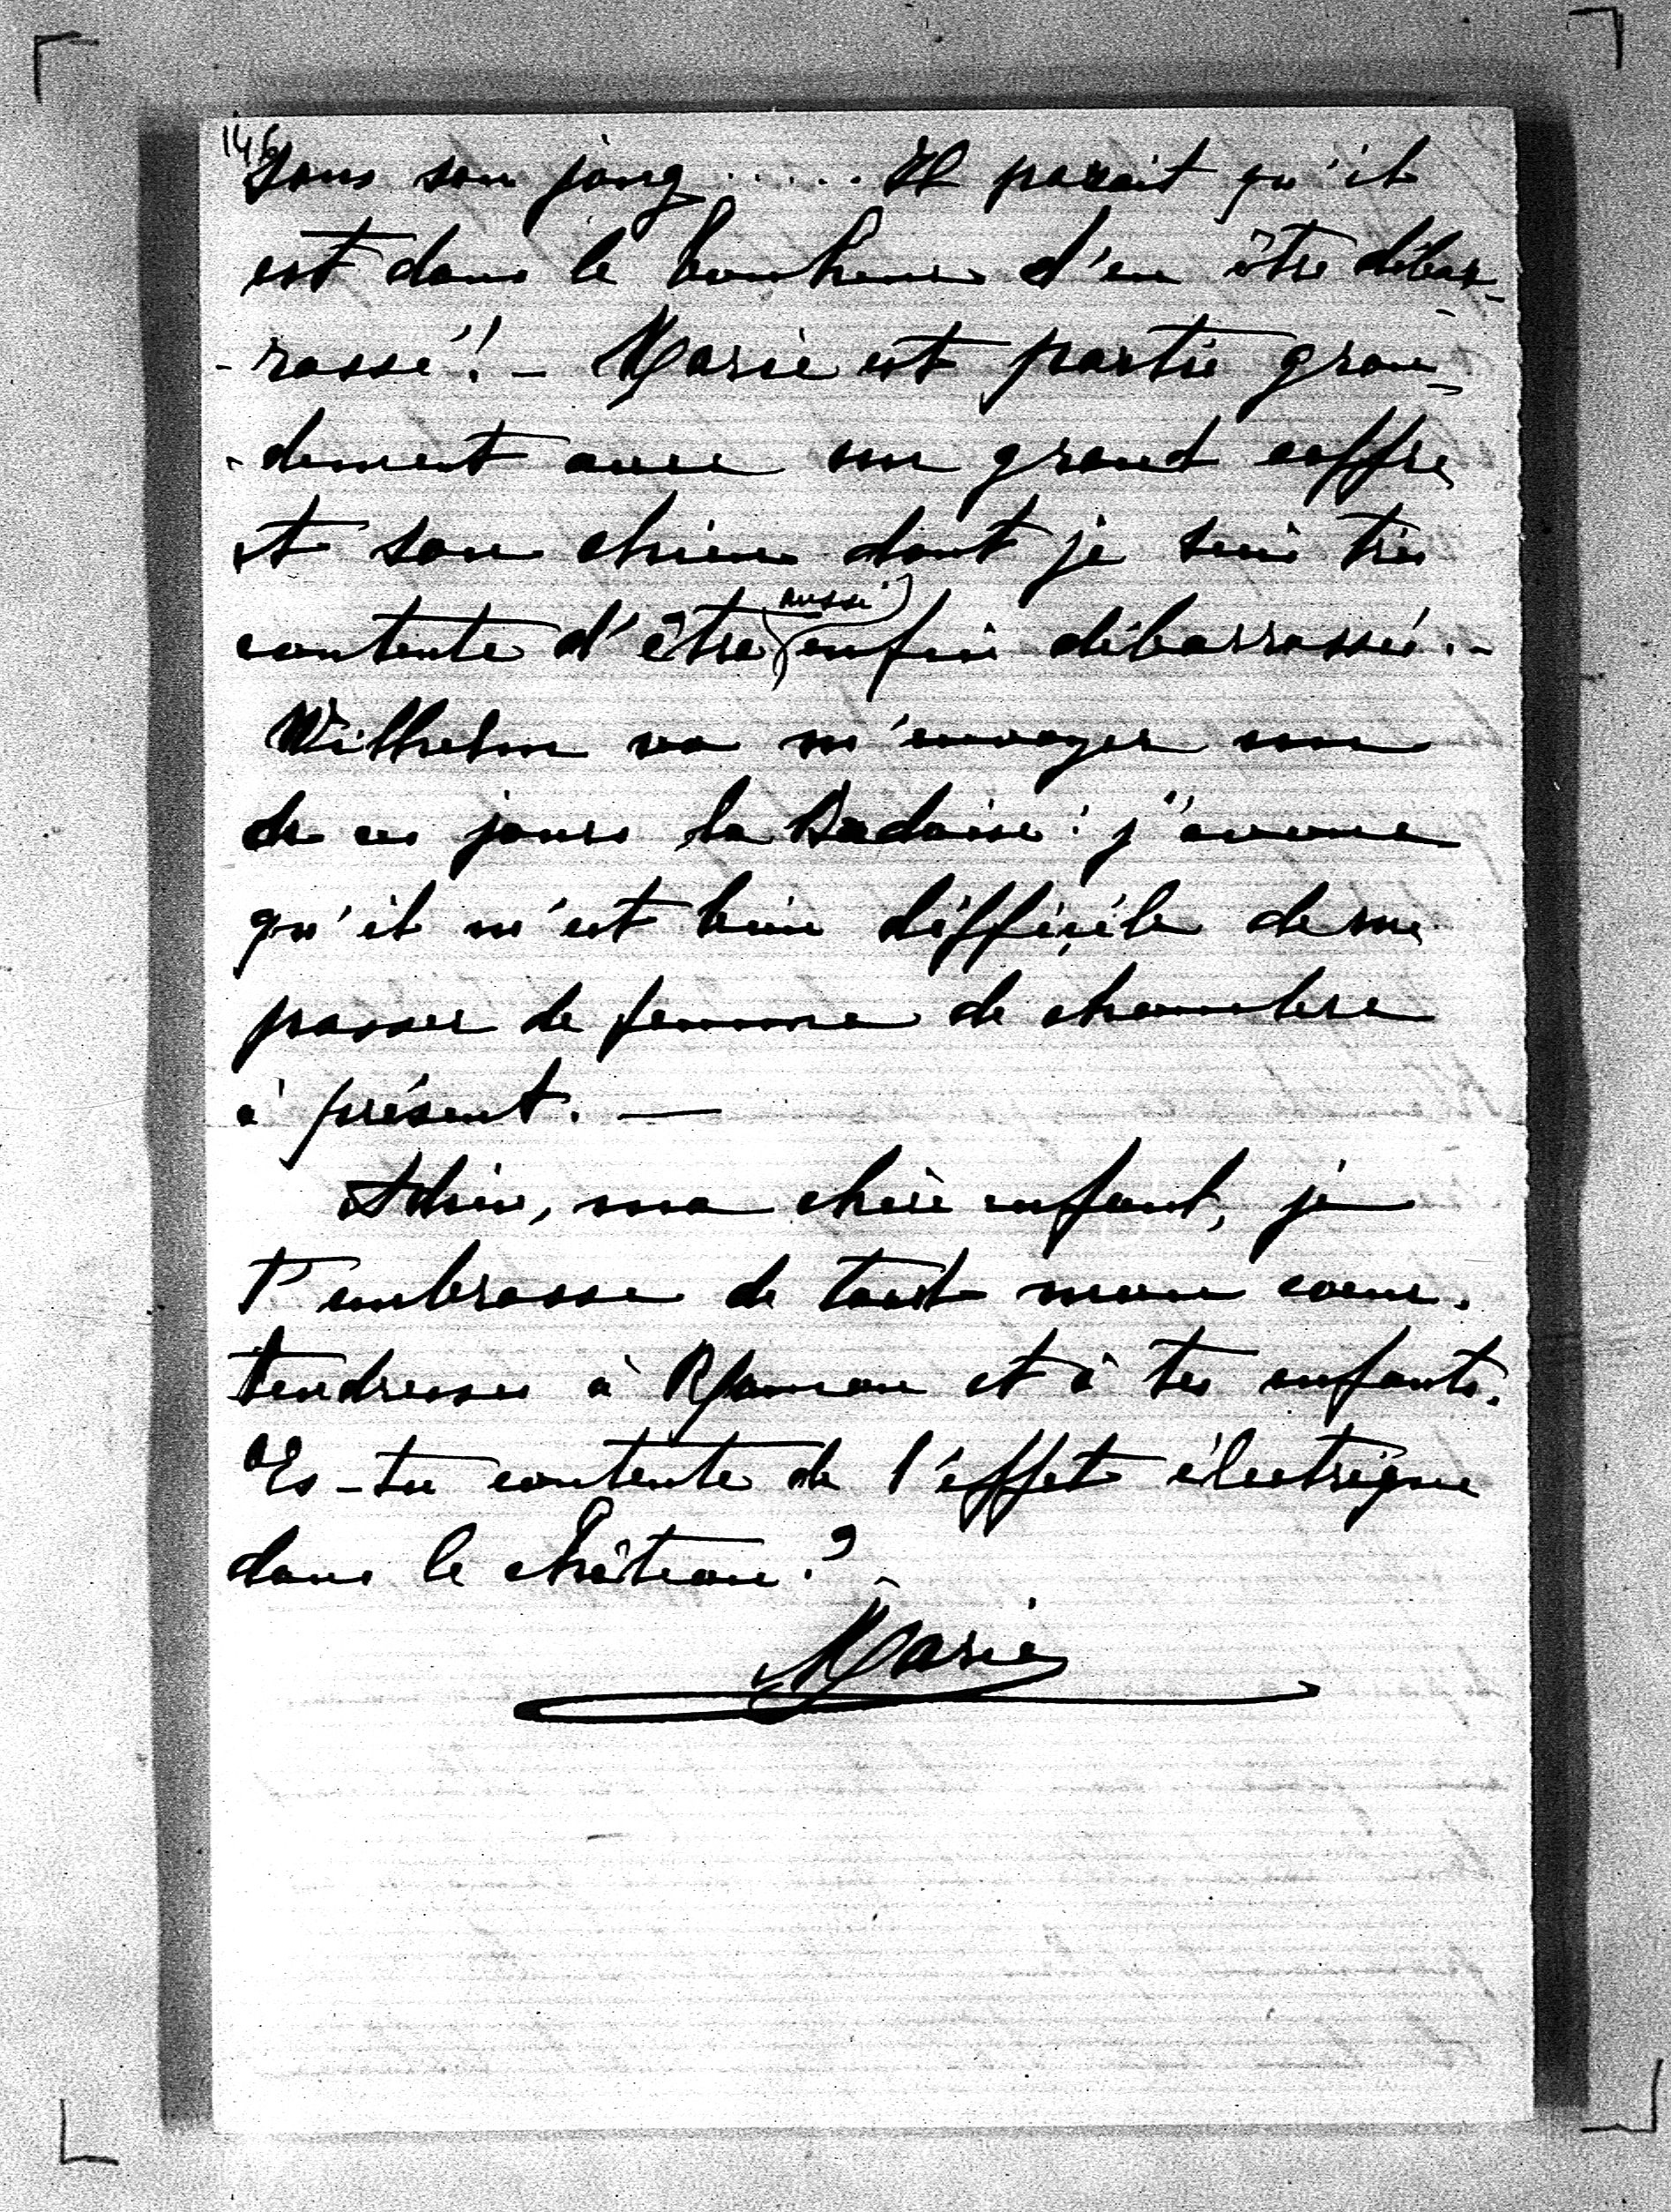 146
sous son joug ..... Il parait qu'il
est dans le bonheur d'en être débar-
-rassé! - Marie est partie gran-
-dement avec un grand coffre
et son chien dont je suis très
contente d'être (aussi) enfin débarrassée. -
Wilhelm va m'envoyer une
de ces jours la Badoise: j'avoue
qu'il m'est bien difficile de me
passer de femme de chambre
à présent. —
Adieu, ma chère enfant, je
t'embrasse de tout mon coeur.
tendresses à Maman et à tes enfants.
Es-tu contente de l'effet électrique
dans le château? -
Marie